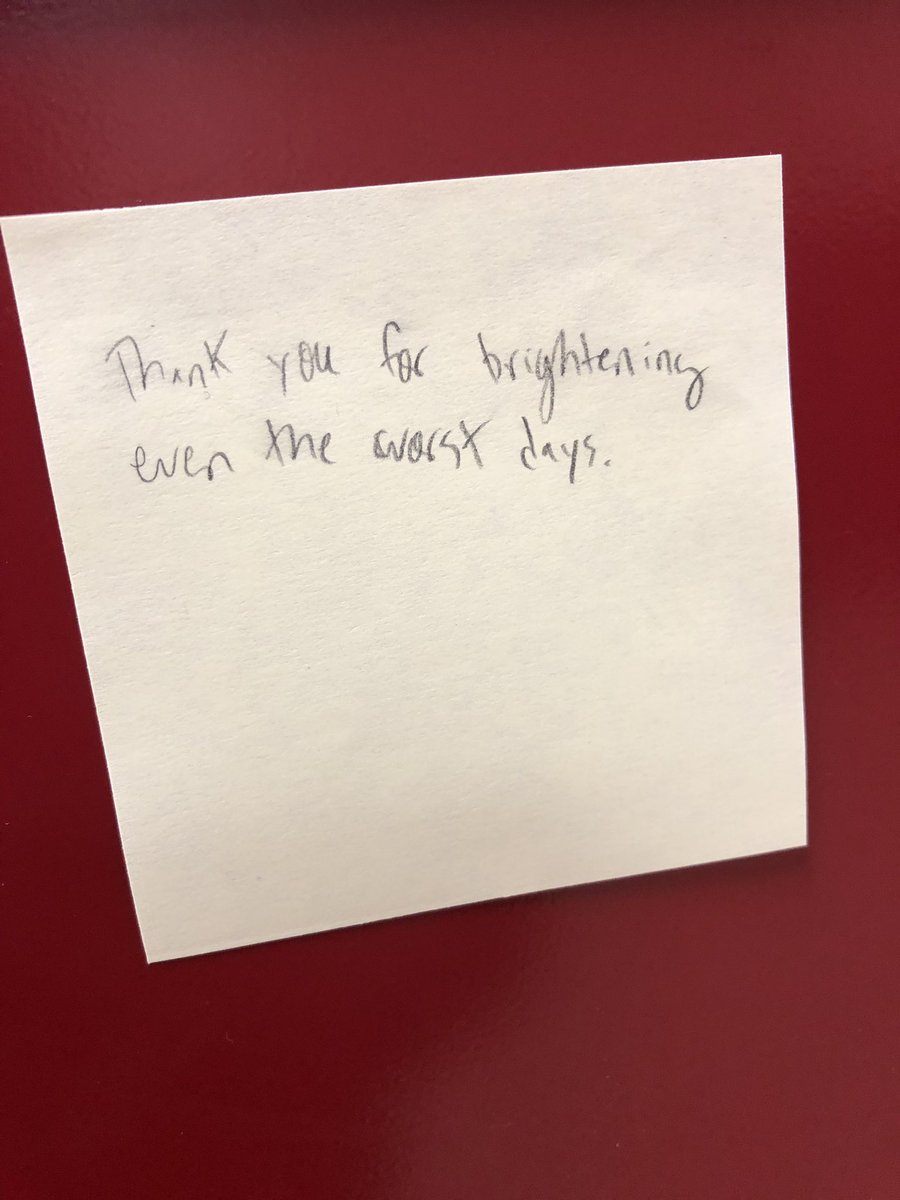 Thank you for brightening
even the worst days.